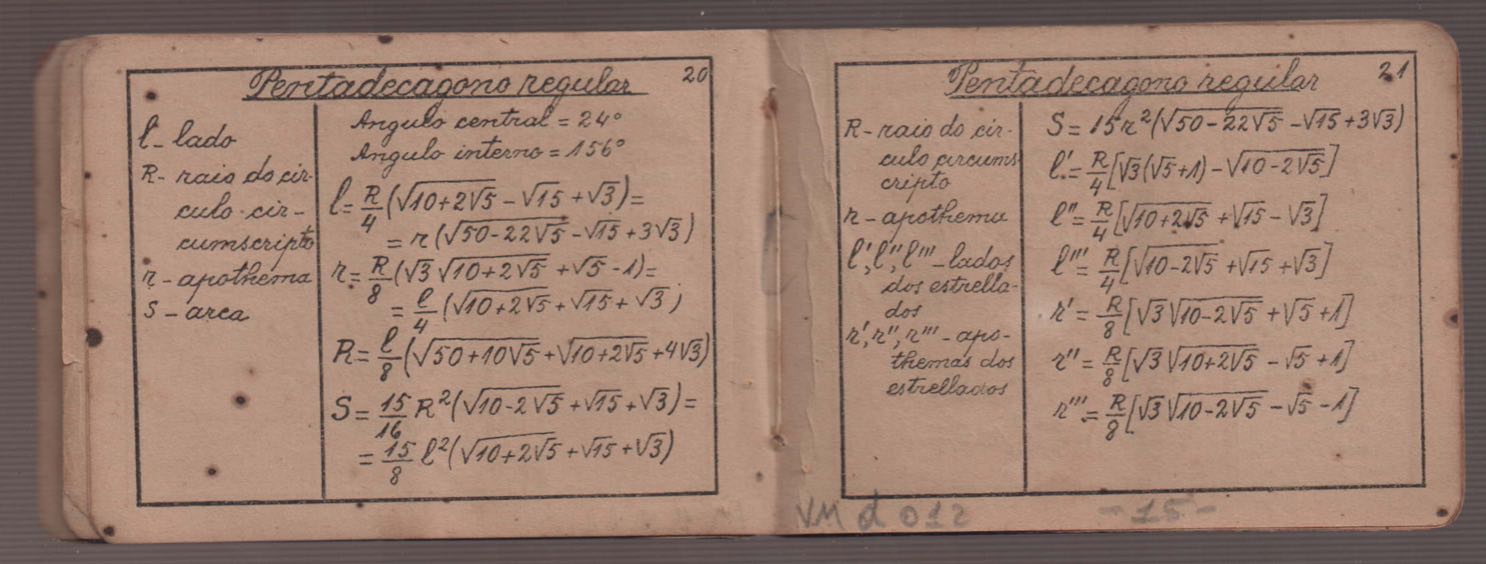 Pentadecagono regular 20
l - lado
R - raio do cir-
culo cir-
cumscripto
r - apothema
S - area
Angulo central = 24°
Angulo interno = 156°
l = R/4 (√(10+2√5) - √15 + √3) =
= r (√(50-22√5) - √15 + 3√3)
r = R/8 (√3 √(10+2√5) + √5 - 1) =
= l/4 (√(10+2√5) + √15 + √3)
R = l/8 (√(50+10√5) + √(10+2√5) + 4√3)
S = 15/16 R² (√(10-2√5) + √15 + √3) =
= 15/8 l² (√(10+2√5) + √15 + √3)
Pentadecagono regular 21
R - raio do cir-
culo circums
cripto
r - apothema
l', l'', l''' - lados
dos estrella-
dos
r', r'', r''' - apo-
themas dos
estrellados
S = 15r² (√(50-22√5) - √15 + 3√3)
l' = R/4 [√3(√5+1) - √(10-2√5)]
l'' = R/4 [√(10+2√5) + √15 - √3]
l''' = R/4 [√(10-2√5) + √15 + √3]
r' = R/8 [√3 √(10-2√5) + √5 + 1]
r'' = R/8 [√3 √(10+2√5) - √5 + 1]
r''' = R/8 [√3 √(10-2√5) - √5 - 1]
VM d 012 - 15 -